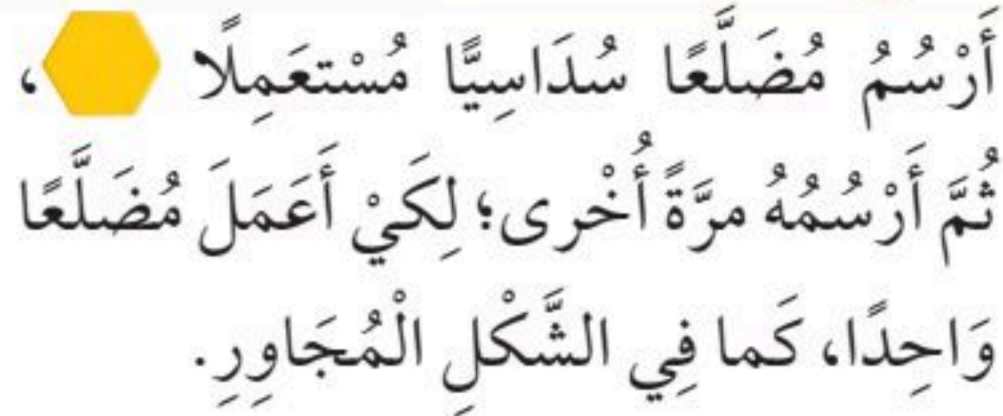 أَرْسُمُ مُضَلَّعًا سُدَاسِيًّا مُسْتعَمِلًا ،
ثُمَّ أَرْسُمُهُ مرَّةً أُخْرى؛ لِكَيْ أَعَمَلَ مُضَلَّعًا
وَاحِدًا، كَما فِي الشَّكْلِ الْمُجَاوِرِ.